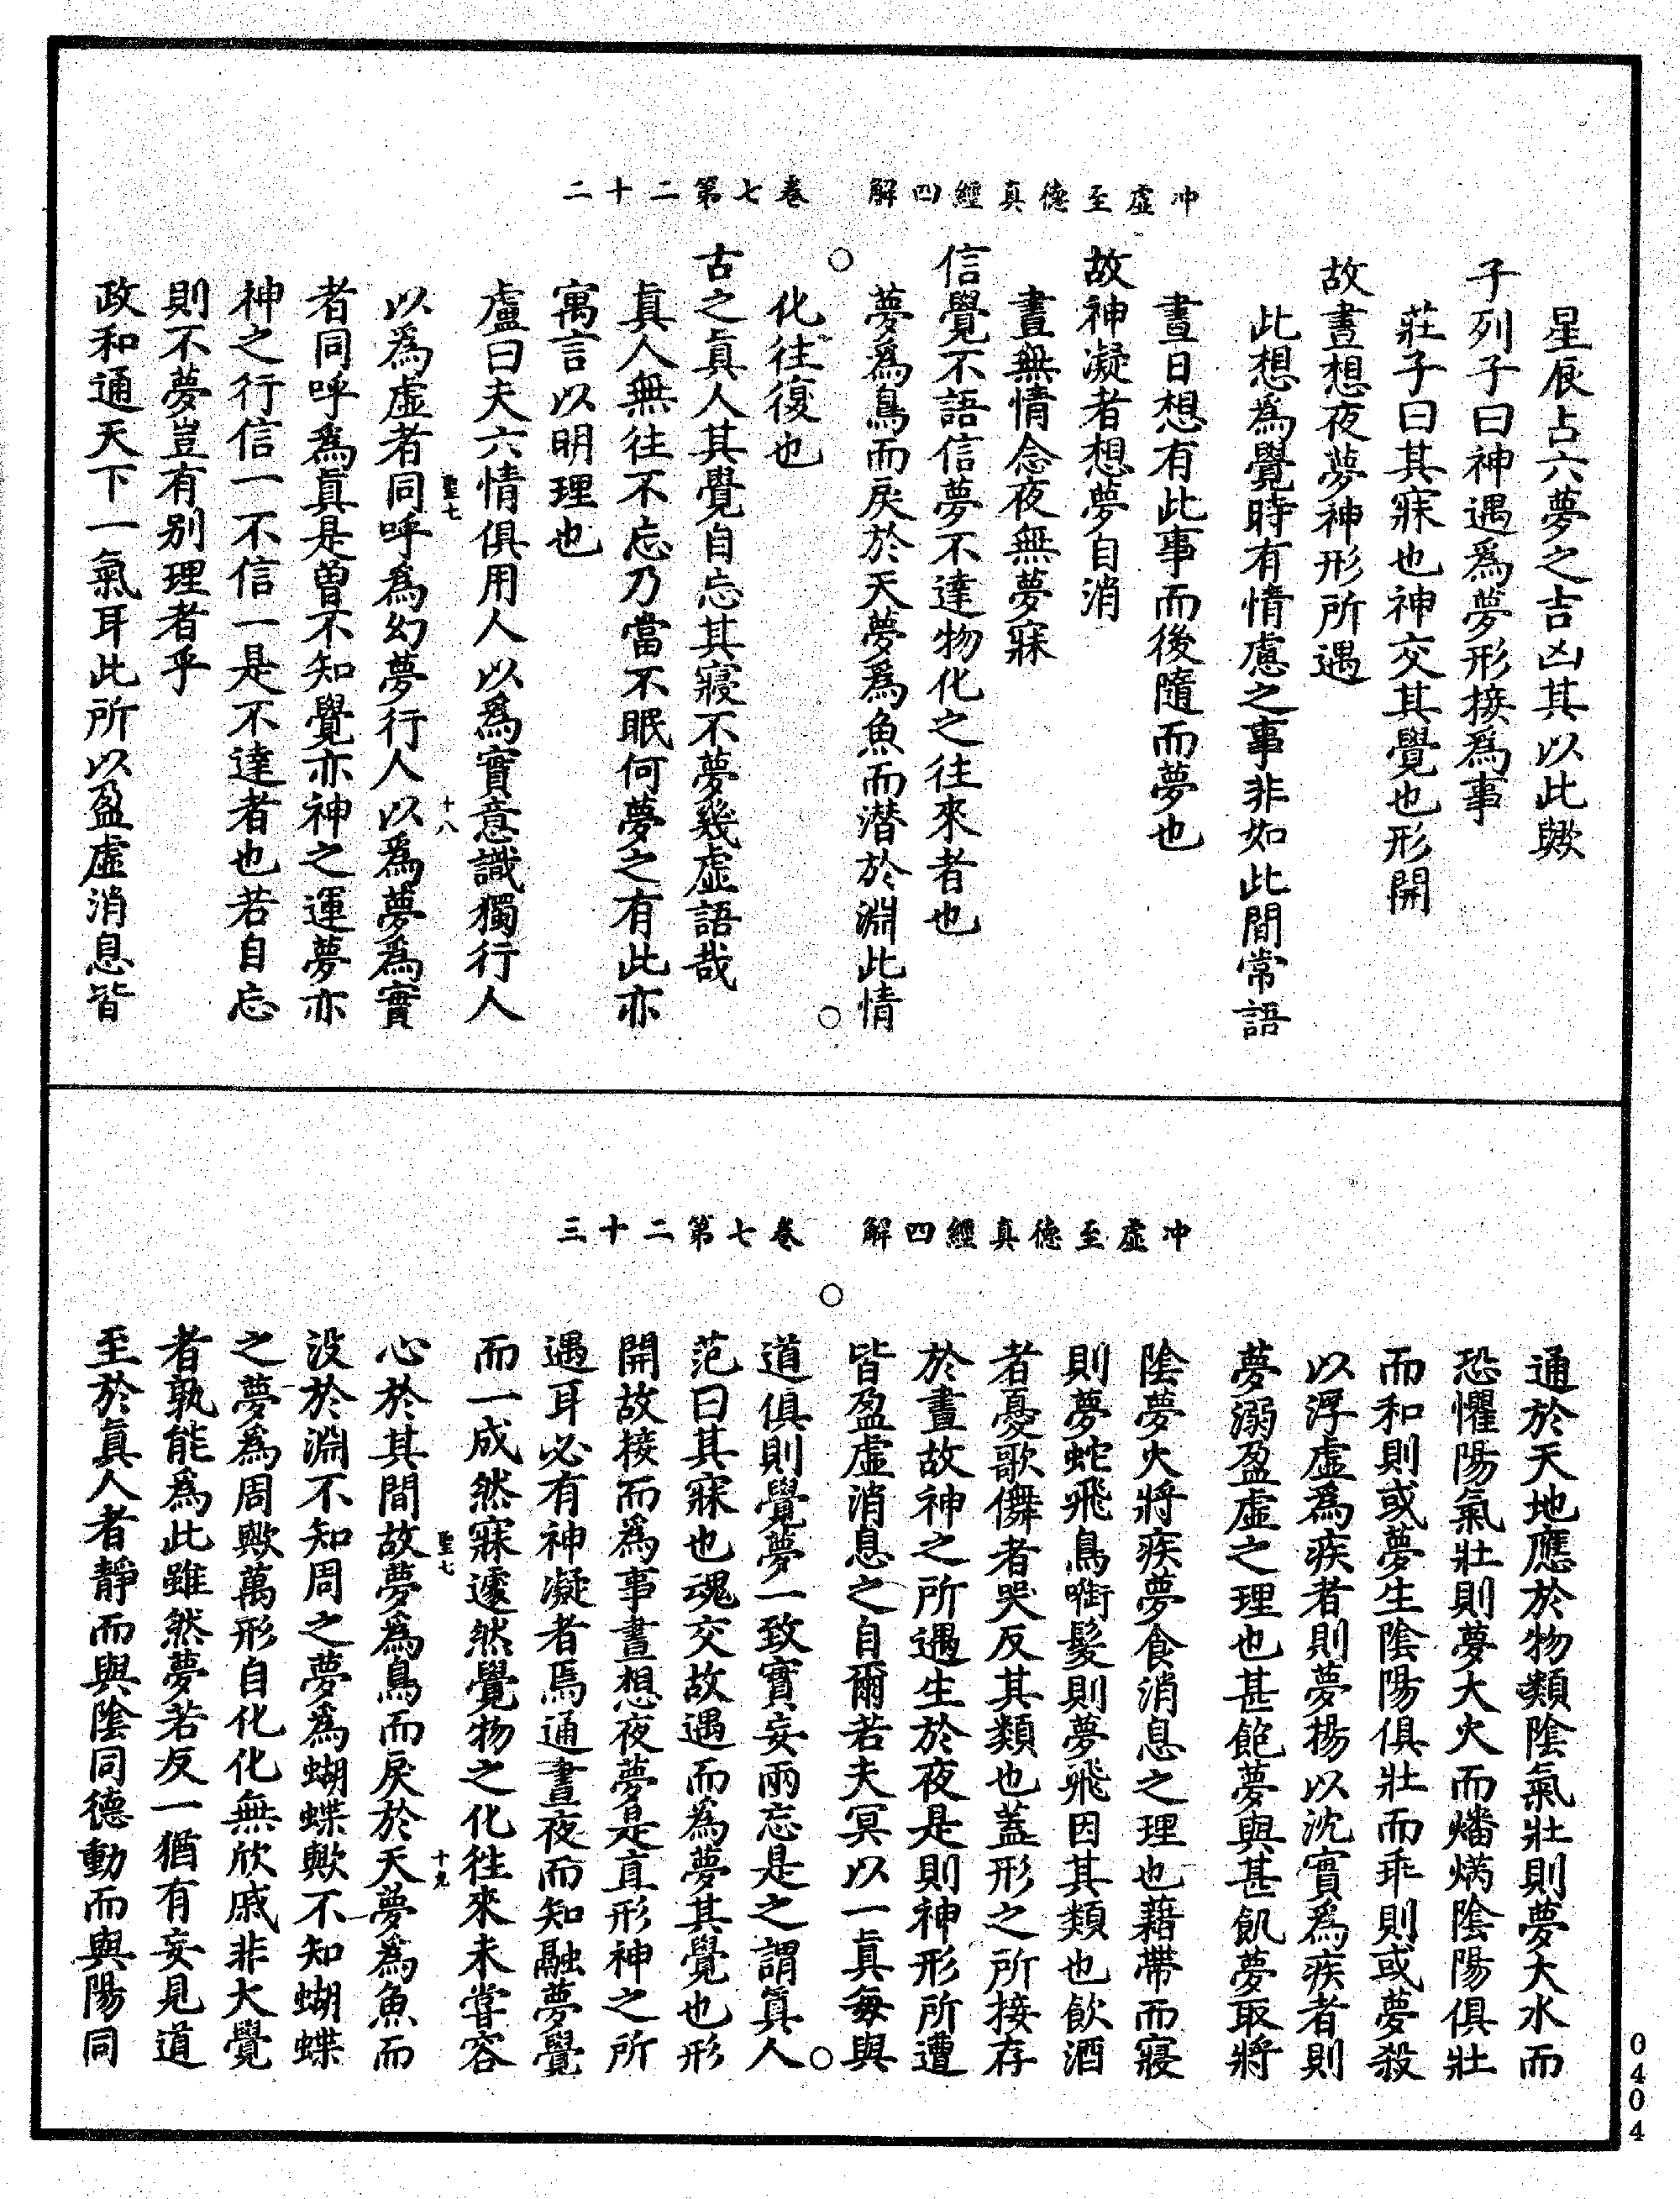 冲虛至德真經四解　卷七第二十二
星辰占六夢之吉凶其以此歟
子列子曰神遇爲夢形接爲事
莊子曰其寐也神交其覺也形開
故晝想夜夢神形所遇
此想爲覺時有情慮之事非如此間常語
晝日想有此事而後隨而夢也
故神凝者想夢自消
晝無情念夜無夢寐
信覺不語信夢不達物化之往來者也
夢爲鳥而戾於天夢爲魚而潛於淵此情
化往復也
古之真人其覺自忘其寢不夢幾虛語哉
真人無往不忘乃當不眠何夢之有此亦
寓言以明理也
盧曰夫六情俱用人以爲實意識獨行人
以爲虛者同呼爲幻夢行人以爲夢爲實
者同呼爲真是曾不知覺亦神之運夢亦
神之行信一不信一是不達者也若自忘
則不夢豈有別理者乎
政和通天下一氣耳此所以盈虛消息皆
聖七
十八
冲虛至德真經四解　卷七第二十三
通於天地應於物類陰氣壯則夢大水而
恐懼陽氣壯則夢大火而燔焫陰陽俱壯
而和則或夢生陰陽俱壯而乖則或夢殺
以浮虛爲疾者則夢揚以沈實爲疾者則
夢溺盈虛之理也甚飽夢與甚飢夢取將
陰夢火將疾夢食消息之理也藉帶而寢
則夢蛇飛鳥銜髮則夢飛因其類也飲酒
者憂歌儛者哭反其類也蓋形之所接存
於晝故神之所遇生於夜是則神形所遭
皆盈虛消息之自爾若夫冥以一真每與
道俱則覺夢一致實妄兩忘是之謂真人
范曰其寐也魂交故遇而爲夢其覺也形
開故接而爲事晝想夜夢是直形神之所
遇耳必有神凝者焉通晝夜而知融夢覺
而一成然寐遽然覺物之化徃來未嘗容
心於其間故夢爲鳥而戾於天夢爲魚而
没於淵不知周之夢爲蝴蝶歟不知蝴蝶
之夢爲周歟萬形自化化無欣戚非大覺
者孰能爲此雖然夢若反一猶有妄見道
至於真人者靜而與陰同德動而與陽同
聖七
十九
0404